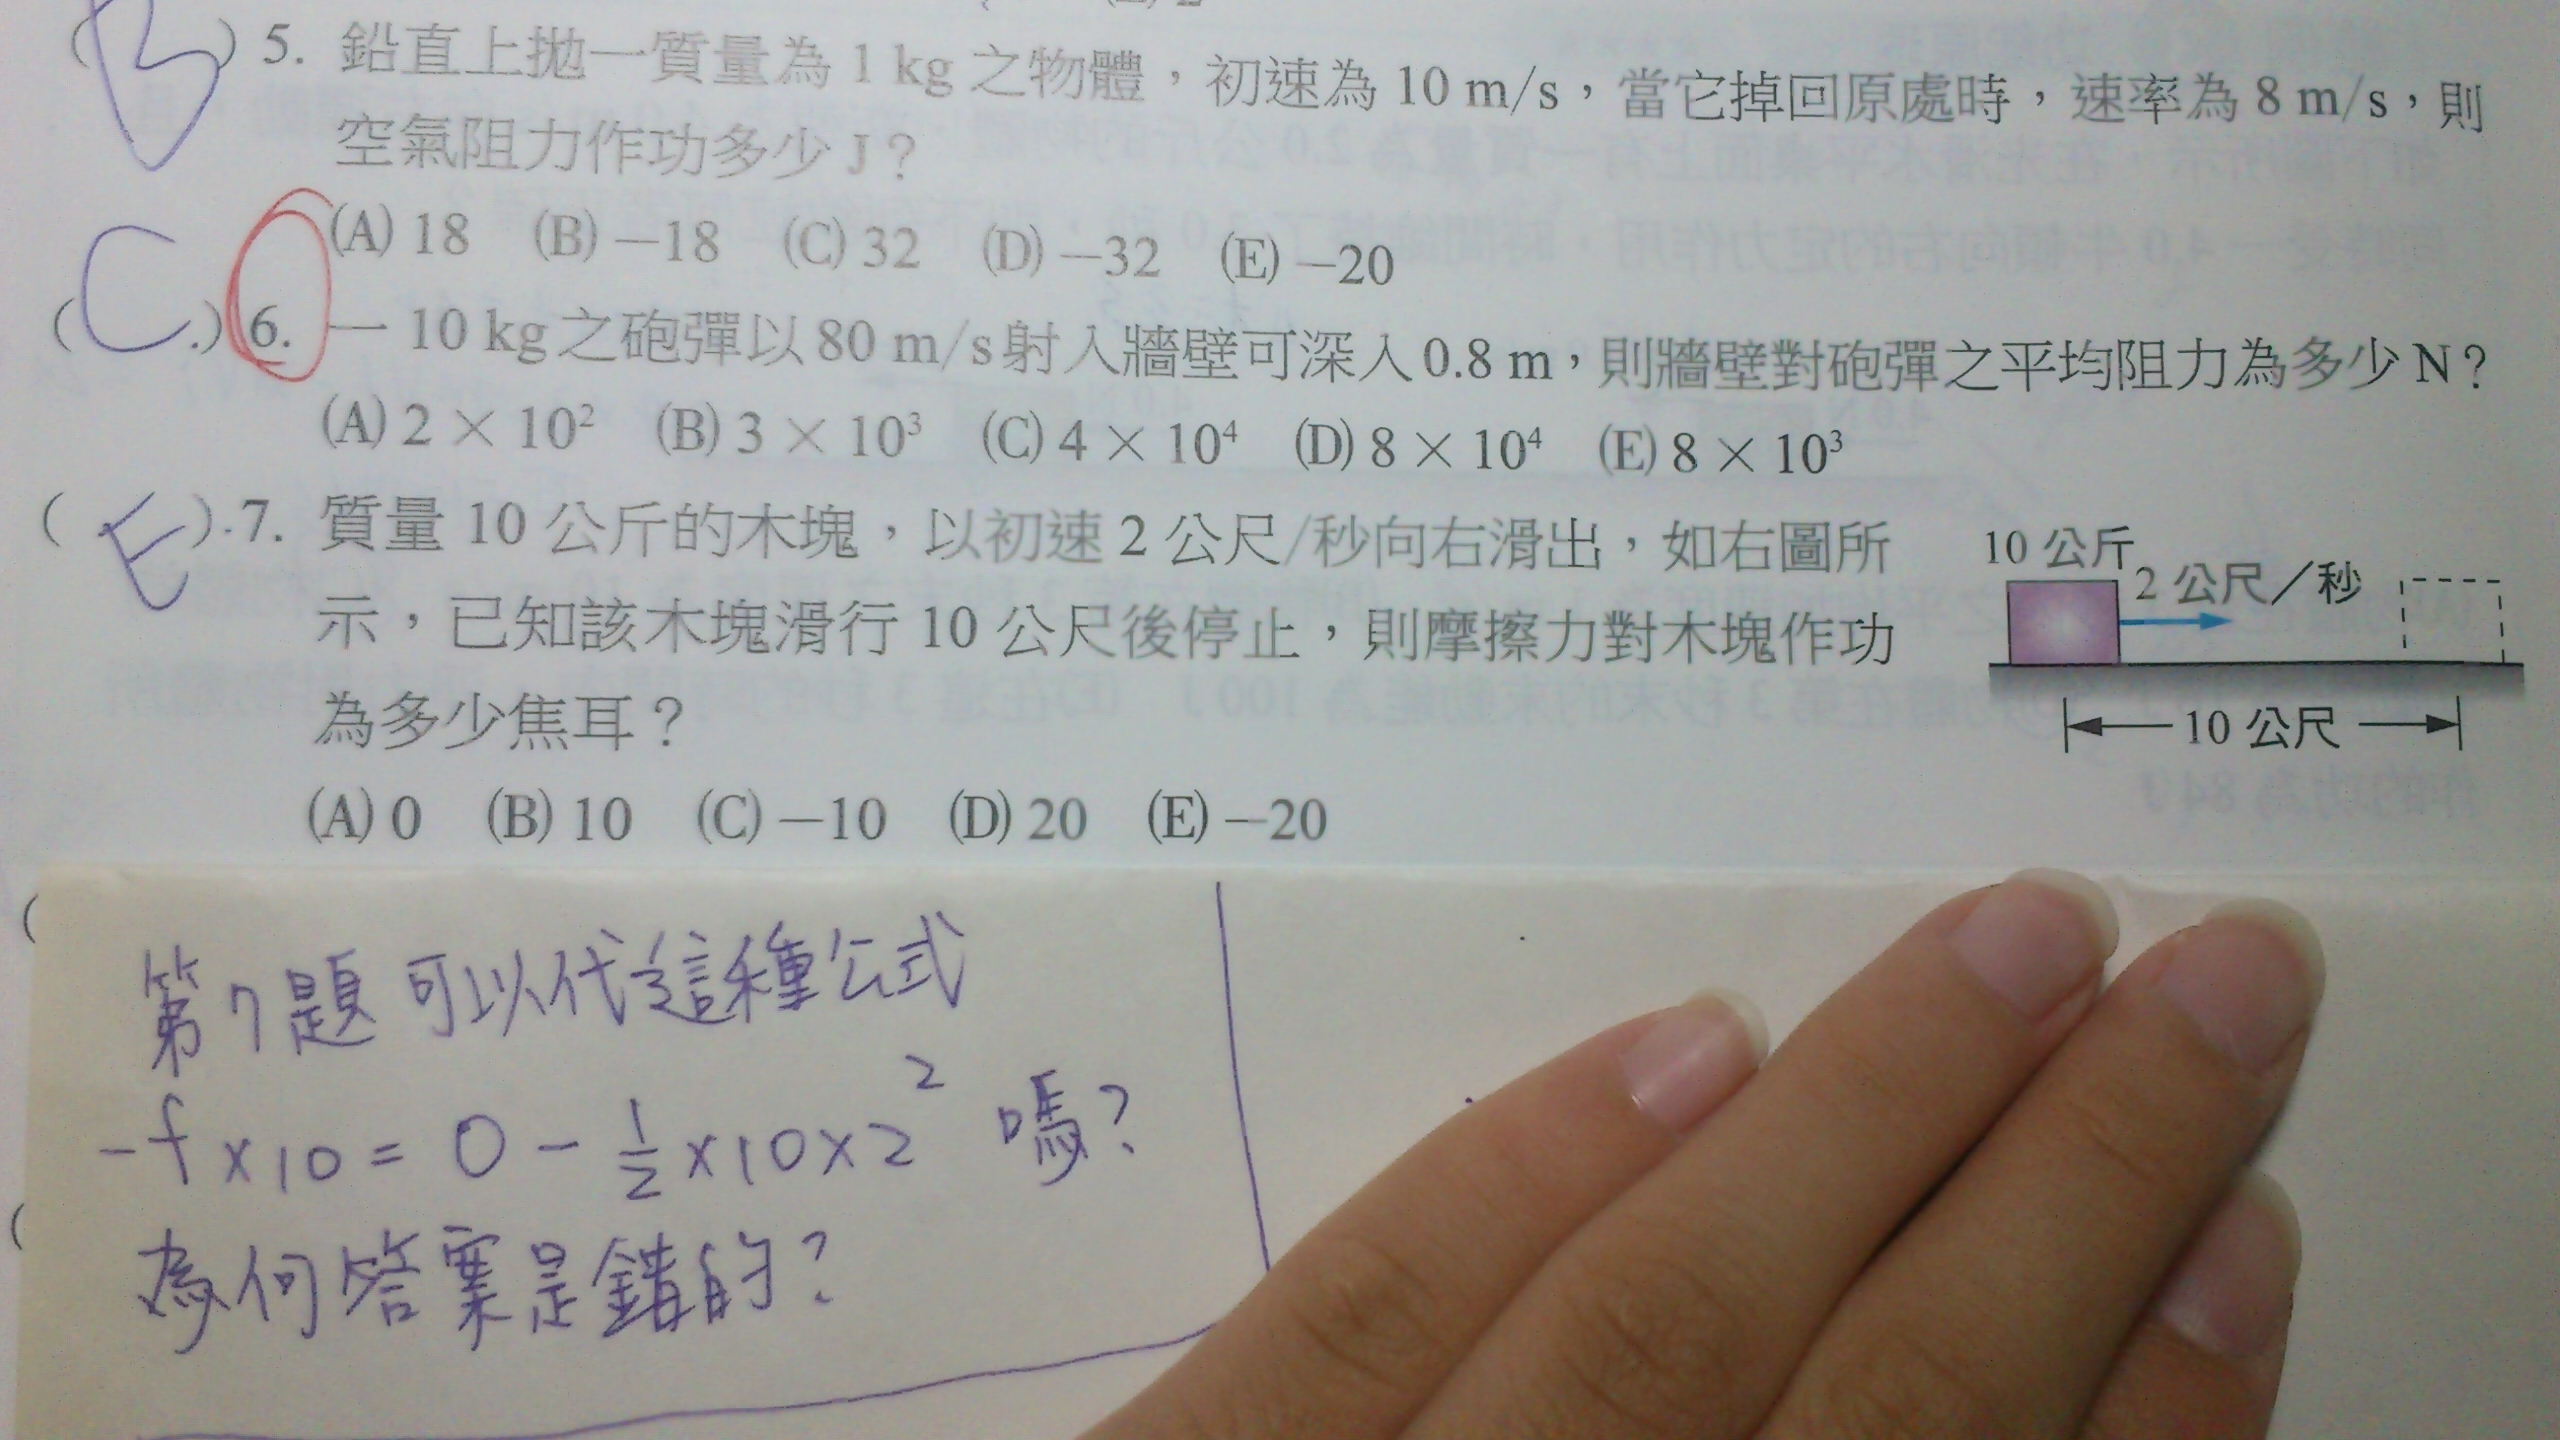 (B) 5. 鉛直上拋一質量為 1 kg 之物體，初速為 10 m/s，當它掉回原處時，速率為 8 m/s，則
空氣阻力作功多少 J？
(A) 18 (B) −18 (C) 32 (D) −32 (E) −20
(C.) 6. 一 10 kg 之砲彈以 80 m/s 射入牆壁可深入 0.8 m，則牆壁對砲彈之平均阻力為多少 N？
(A) 2 × 10² (B) 3 × 10³ (C) 4 × 10⁴ (D) 8 × 10⁴ (E) 8 × 10³
(E).7. 質量 10 公斤的木塊，以初速 2 公尺/秒向右滑出，如右圖所
示，已知該木塊滑行 10 公尺後停止，則摩擦力對木塊作功
為多少焦耳？
(A) 0 (B) 10 (C) −10 (D) 20 (E) −20
10 公斤
2 公尺／秒
10 公尺
第7題可以代這種公式
-f×10=0-½×10×2² 嗎？
為何答案是錯的？